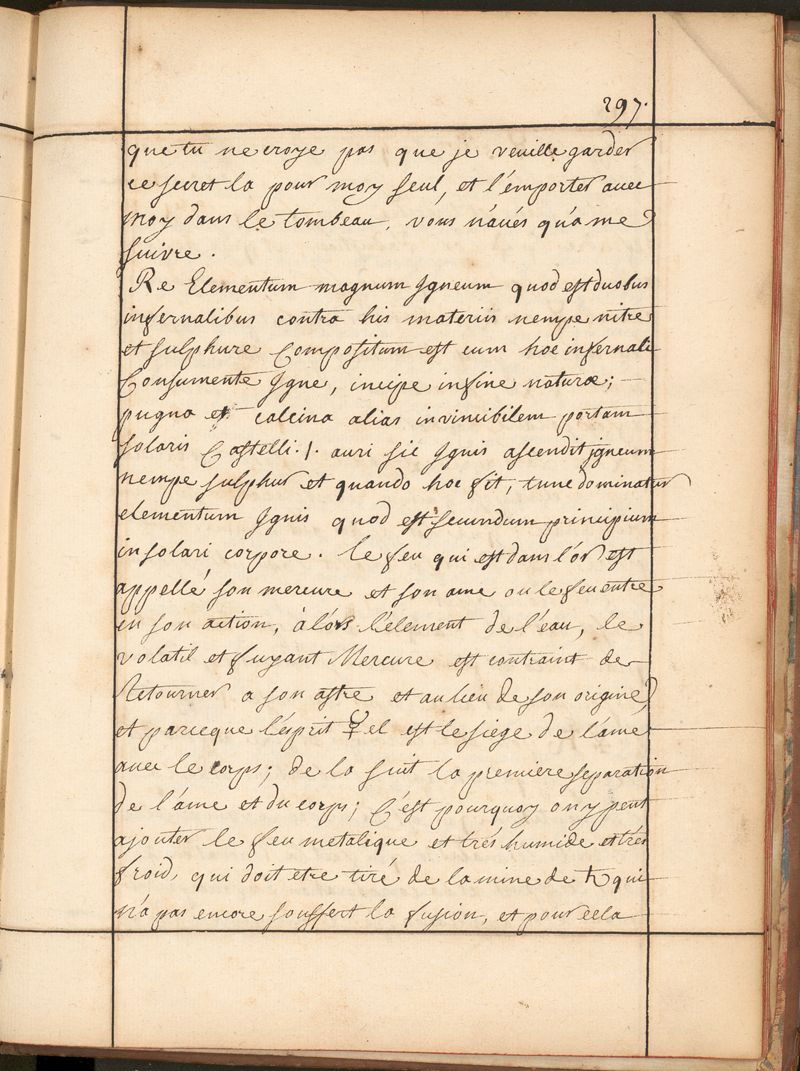 297.
que tu ne croye pas que je veuille garder
ce secret la pour moy seul, et l'emporter avec
moy dans le tombeau, vous n'avés qu'a me
suivre.
Re Elementum magnum Igneum quod est duobus
infernalibus contra his materiis nempe nitre
et sulphure Compositum est cum hoc infernali
Consumente Igne, incipe in fine naturæ;
pugna et calcina alias invincibilem portam
solaris Castelli .|. auri sic Ignis ascendit igneum
nempe sulphur et quando hoc fit, tunc dominatur
elementum Ignis quod est secundum principium
in solari corpore. le feu qui est dans l'or est
appellé son mercure et son ame ou le feu entre
en son action, à lórs l'element de l'eau, le
volatil et fuyant Mercure est contraint de
Retourner a son astre et au lieu de son origine,
et parceque l'esprit ☿el est le siége de l'ame
avec le corps; de la suit la premiere separation
de l'âme et du corps; C'est pourquoy on y peut
ajouter le feu metalique et trés humide et trés
froid, qui doit etre tiré de la mine de ♄ qui
n'a pas encore souffert la fusion, et pour cela